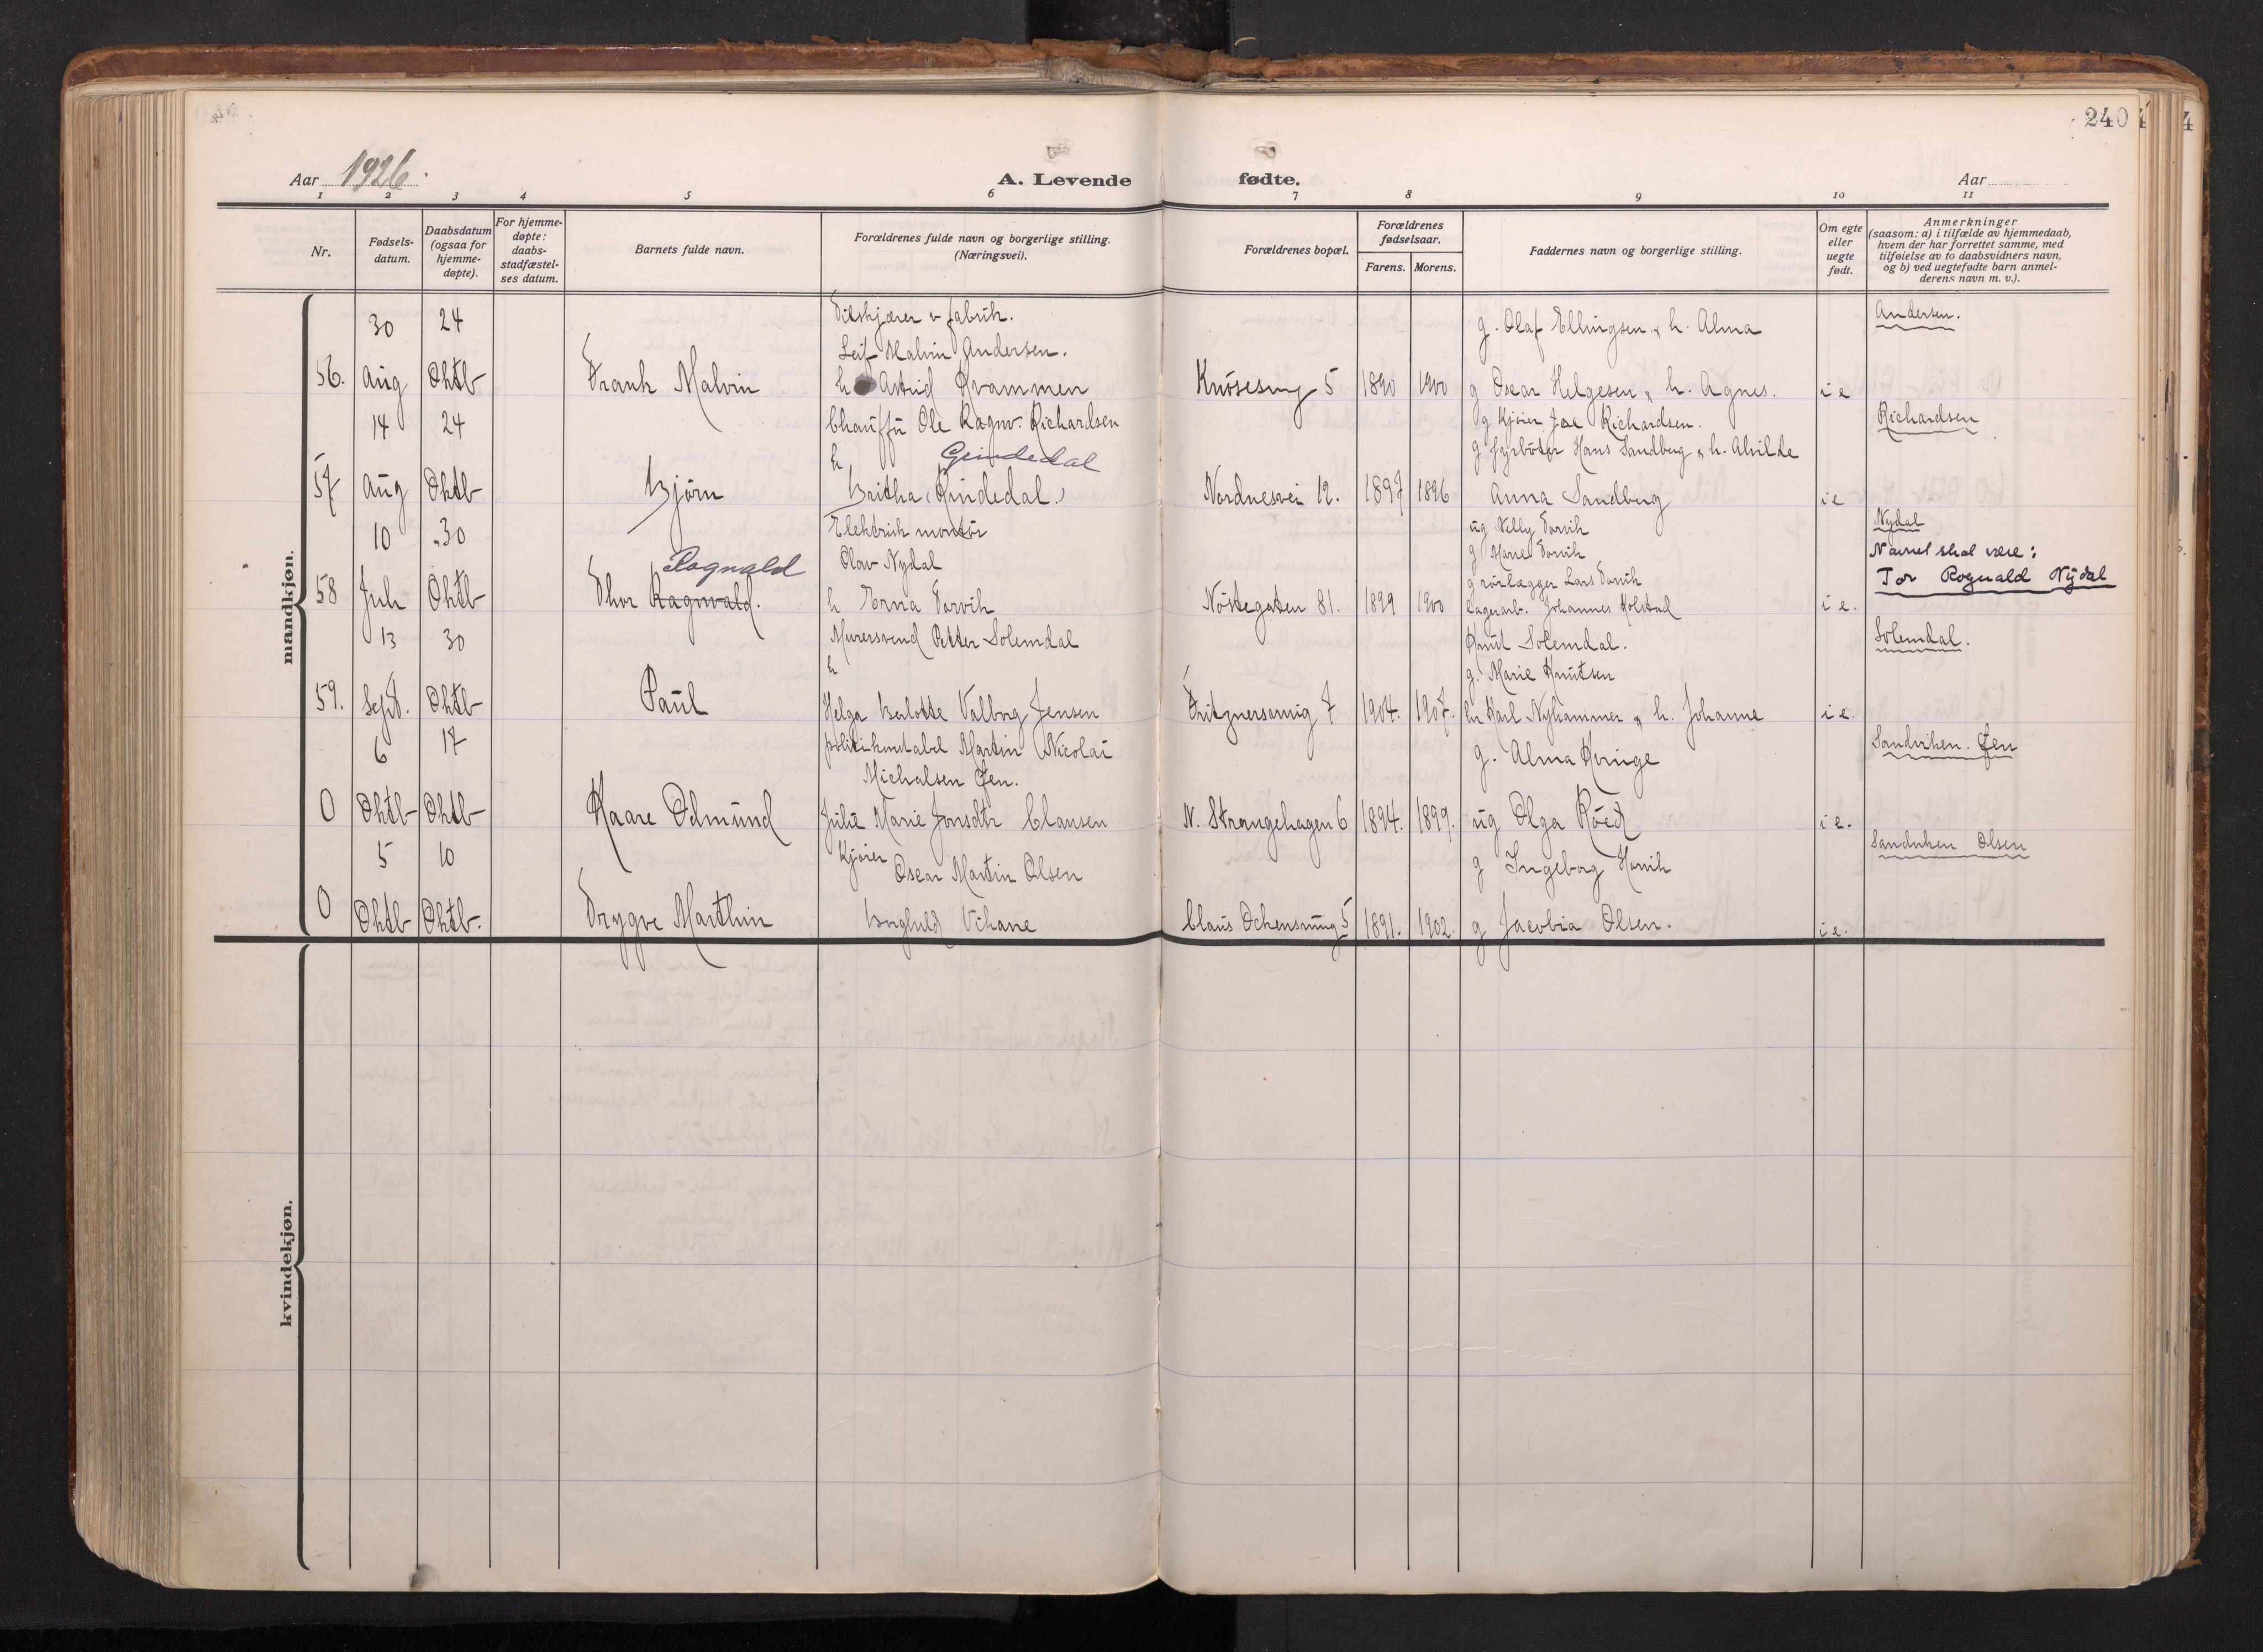 240
Aar 1926.
A. Levende fødte.
Aar
1 2 3 4 5 6 7 8 9 10 11
Nr.
Fødsels-
datum.
Daabsdatum
(ogsaa for
hjemme-
døpte).
For hjemme-
døpte:
daabs-
stadfæstel-
ses datum.
Barnets fulde navn.
Forældrenes fulde navn og borgerlige stilling.
(Næringsvei).
Forældrenes bopæl.
Forældrenes
fødselsaar.
Farens. Morens.
Faddernes navn og borgerlige stilling.
Om egte
eller
uegte
født.
Anmerkninger
(saasom: a) i tilfælde av hjemmedaab,
hvem der har forrettet samme, med
tilføielse av to daabsvidners navn,
og b) ved uegtefødte barn anmel-
derens navn m. v.).
mandkjøn.
56.
30
Aug
24
Oktb
Frank Malvin
Tilskjærer v fabrik.
Leif Malvin Andersen.
h Astrid Kvammen
Knøsesmg 5
1890 1900
g. Olaf Ellingsen & h. Alma
g Oscar Helgesen & h. Agnes.
i e
Andersen.
57
14
Aug
24
Oktb
Bjørn
Chauffø Ole Ragnv. Richardsen
h Grindedal
Britha (Rindedal.)
Nordnesvei 12.
1897 1896
g Kjøier Joe Richardsen.
g Fyrbøter Hans Sandberg & h. Alvilde
Anna Sandberg
i e
Richardsen
58
10
Juli
30
Oktb
Rognald
Thor Ragnvald.
Elektrisk montør
Olav Nydal
h Erna Torvik
Nøstegaten 81.
1899 1900
ug Nelly Torvik
g Marie Torvik
g rørlægger Lars Torvik
Lagerarb. Johannes Kolstad
i e.
Nydal
Navnet skal være:
Tor Rognald Nydal
59.
13
Sept.
30
Oktb
Paul
Murersvend Petter Solemdal
h
Helga Berlotte Valborg Jensen
Fritznersmug 7
1904. 1907.
Knut Solemdal.
g. Marie Knutsen
hr Karl Nyhammer & h. Johanne
i e.
Solemdal.
0
6
Oktb
17
Oktb
Kaare Edmund
politikonstabel Martin Nicolai
Michalsen Øen.
Julie Marie Jonsdtr Clausen
N. Strangehagen 6
1894. 1899.
g. Alma Kvinge
ug Olga Røed
i e.
Sandviken. Øen
0
5
Oktb
10
Oktb.
Trygve Marthin
Kjøier
Oscar Martin Olsen
Borghild Vikane
Claus Ockensmug 5
1891. 1902.
g Ingeborg Harvik
g Jacobia Olsen.
i e.
Sandviken Olsen
kvindekjøn.